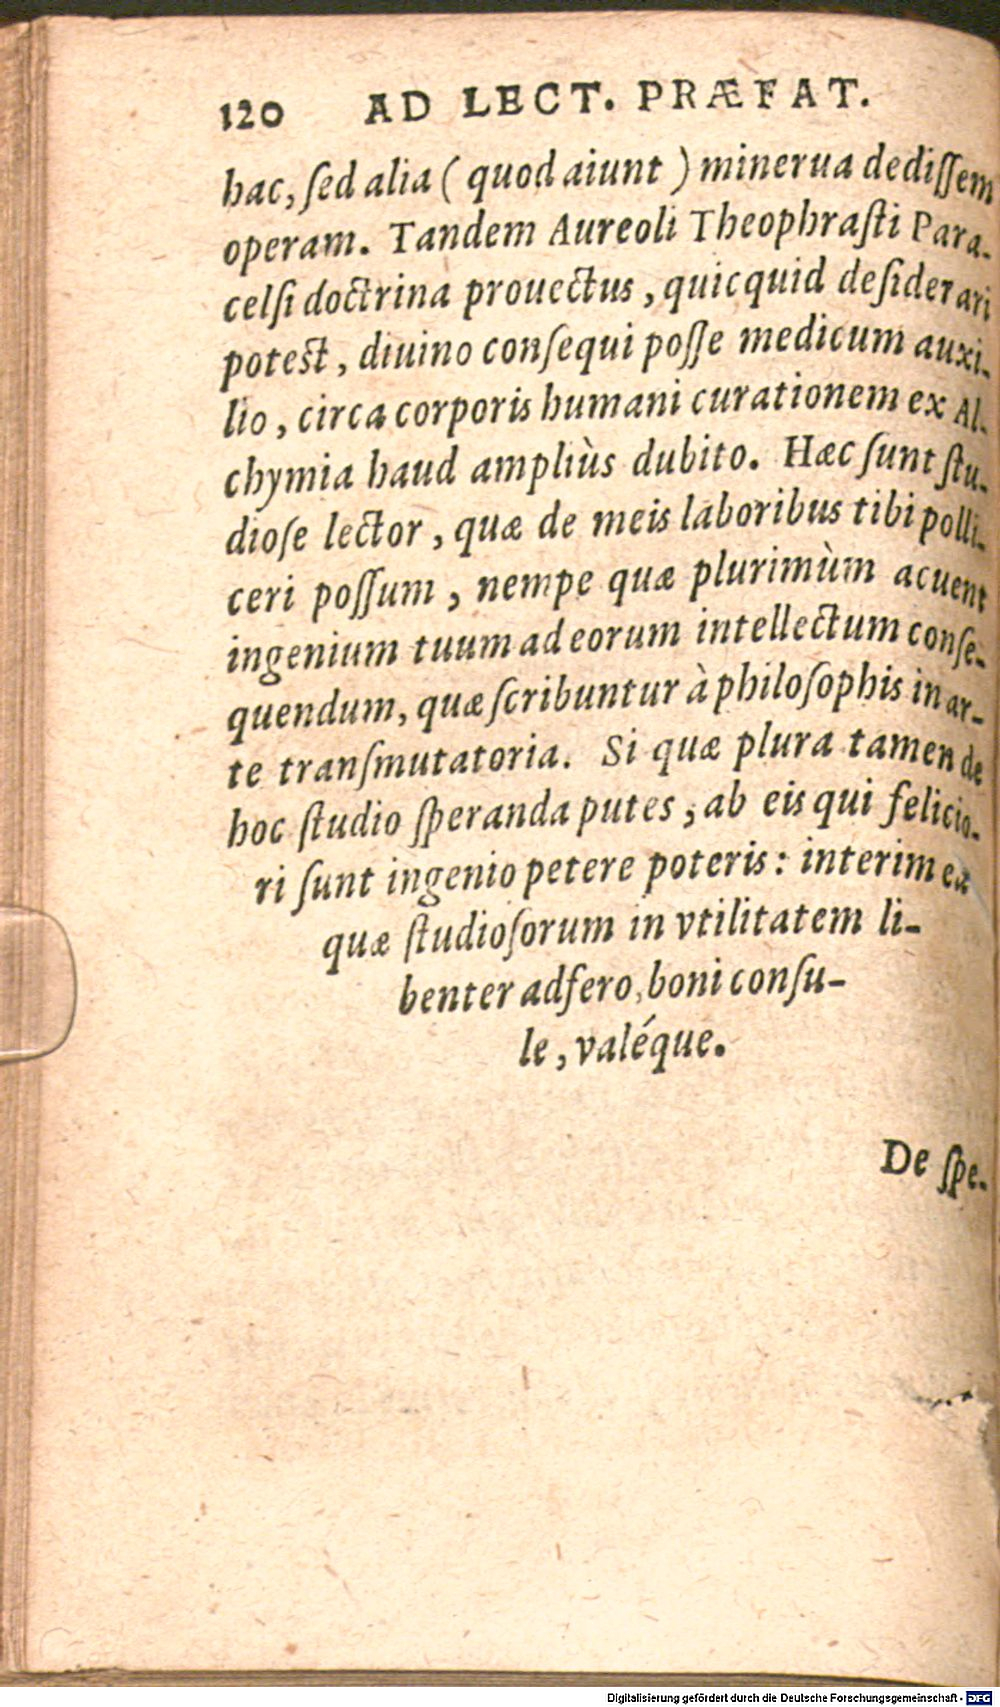 120 AD LECT. PRÆFAT.
hac, ſed alia ( quod aiunt ) minerua dediſſem
operam. Tandem Aureoli Theophraſti Para-
celſi doctrina prouectus, quicquid deſiderari
poteſt, diuino conſequi poſſe medicum auxi-
lio, circa corporis humani curationem ex Al-
chymia haud ampliùs dubito. Hæc ſunt ſtu-
dioſe lector, quæ de meis laboribus tibi polli-
ceri poſſum, nempe quæ plurimùm acuent
ingenium tuum ad eorum intellectum conſe-
quendum, quæ ſcribuntur à philoſophis in ar-
te tranſmutatoria. Si quæ plura tamen de
hoc ſtudio ſperanda putes, ab eis qui felicio-
ri ſunt ingenio petere poteris: interim ea
quæ ſtudioſorum in vtilitatem li-
benter adfero, boni conſu-
le, valéque.
De ſpe-
Digitalisierung gefördert durch die Deutsche Forschungsgemeinschaft - DFG